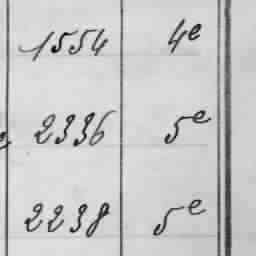 1554 4e
2336 5e
2238 5e